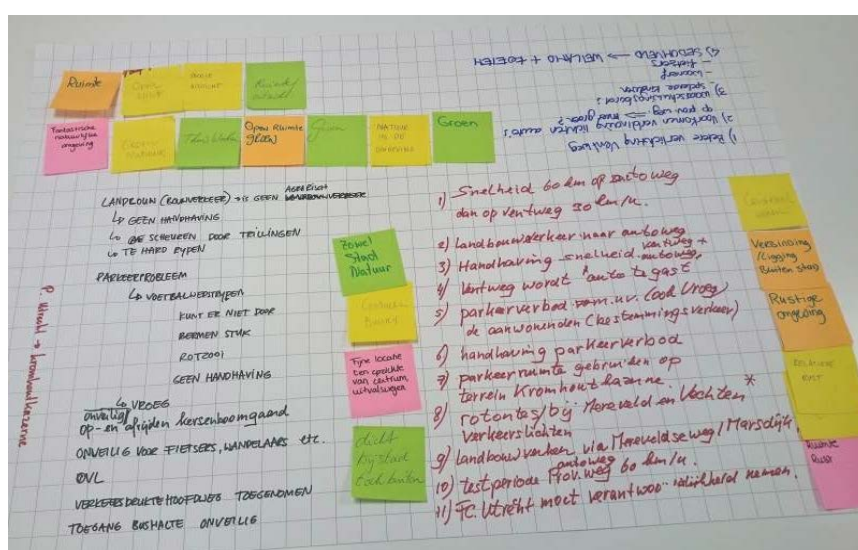 Ruimte
Groen
Fantastische
natuurlijke
omgeving
Open Ruimte
groen
Groen
NATUUR
IN DE
Groen
1) Betere verlichting Ventweg
2) Voorkomen verbinding lichten auto's
op prov. weg
3) waarschuwingsborden
spelende kinderen
- fietsers
LANDBOUW (BOUWVERKEER) → IS GEEN AGRARISCH
↳ GEEN HANDHAVING
↳ SCHEUREN DOOR TRILLINGEN
↳ TE HARD RYDEN
PARKEERPROBLEEM
↳ VOETBALWEDSTRYDEN
KUNT ER NIET DOOR
BERMEN STUK
ROTZOOI
GEEN HANDHAVING
↳ VROEG
onveilig
op- en afrijden kersenboomgaard
ONVEILIG VOOR FIETSERS, WANDELAARS etc.
OVL
VERKEERSDRUKTE HOOFDWEG TOEGENOMEN
TOEGANG BUSHALTE ONVEILIG
Zowel
Stad
Natuur
Fijne locatie
ten opzichte
van centrum
uitvalswegen
dicht
bij stad
toch buiten
1) Snelheid 60 km op autoweg
dan op ventweg 30 km/u.
2) landbouwverkeer naar autoweg
3) Handhaving snelheid ventweg + autoweg
4) Ventweg wordt "auto te gast
5) parkeerverbod m.u.v. (ook Vroeg)
de aanwonenden (bestemmingsverkeer)
6) handhaving parkeerverbod
7) parkeerruimte gebruiken op
terrein Kromhoutkazerne.
8) rotontes/bij Mereveld en Vechten *
verkeerslichten
9) landbouwverkeer via Mereveldseweg/Marsdijk
10) testperiode autoweg Prov.weg 60 km/u.
11) FC. Utrecht moet verantwoordelijkheid nemen.
Verbinding
/Ligging
Buiten stad
Rustige
omgeving
Ruimte
Rust